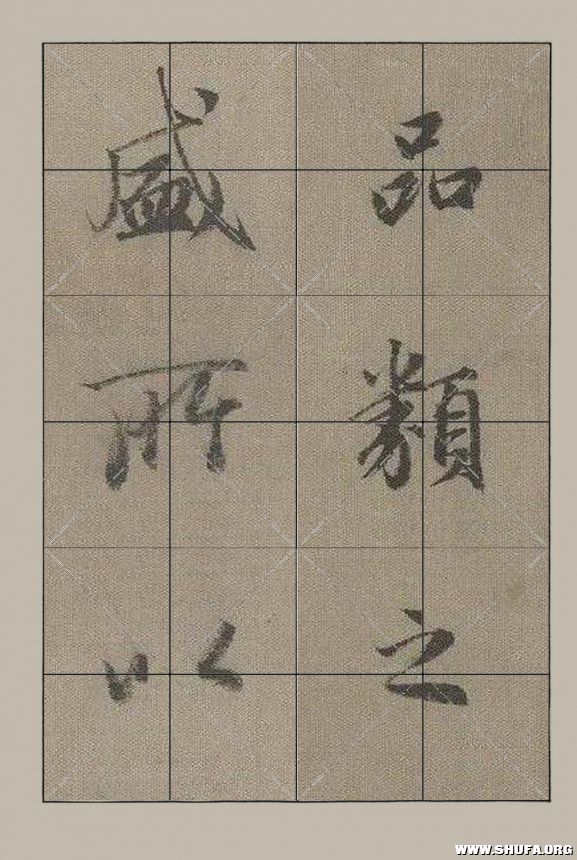 品類之
盛所以
WWW.SHUFA.ORG